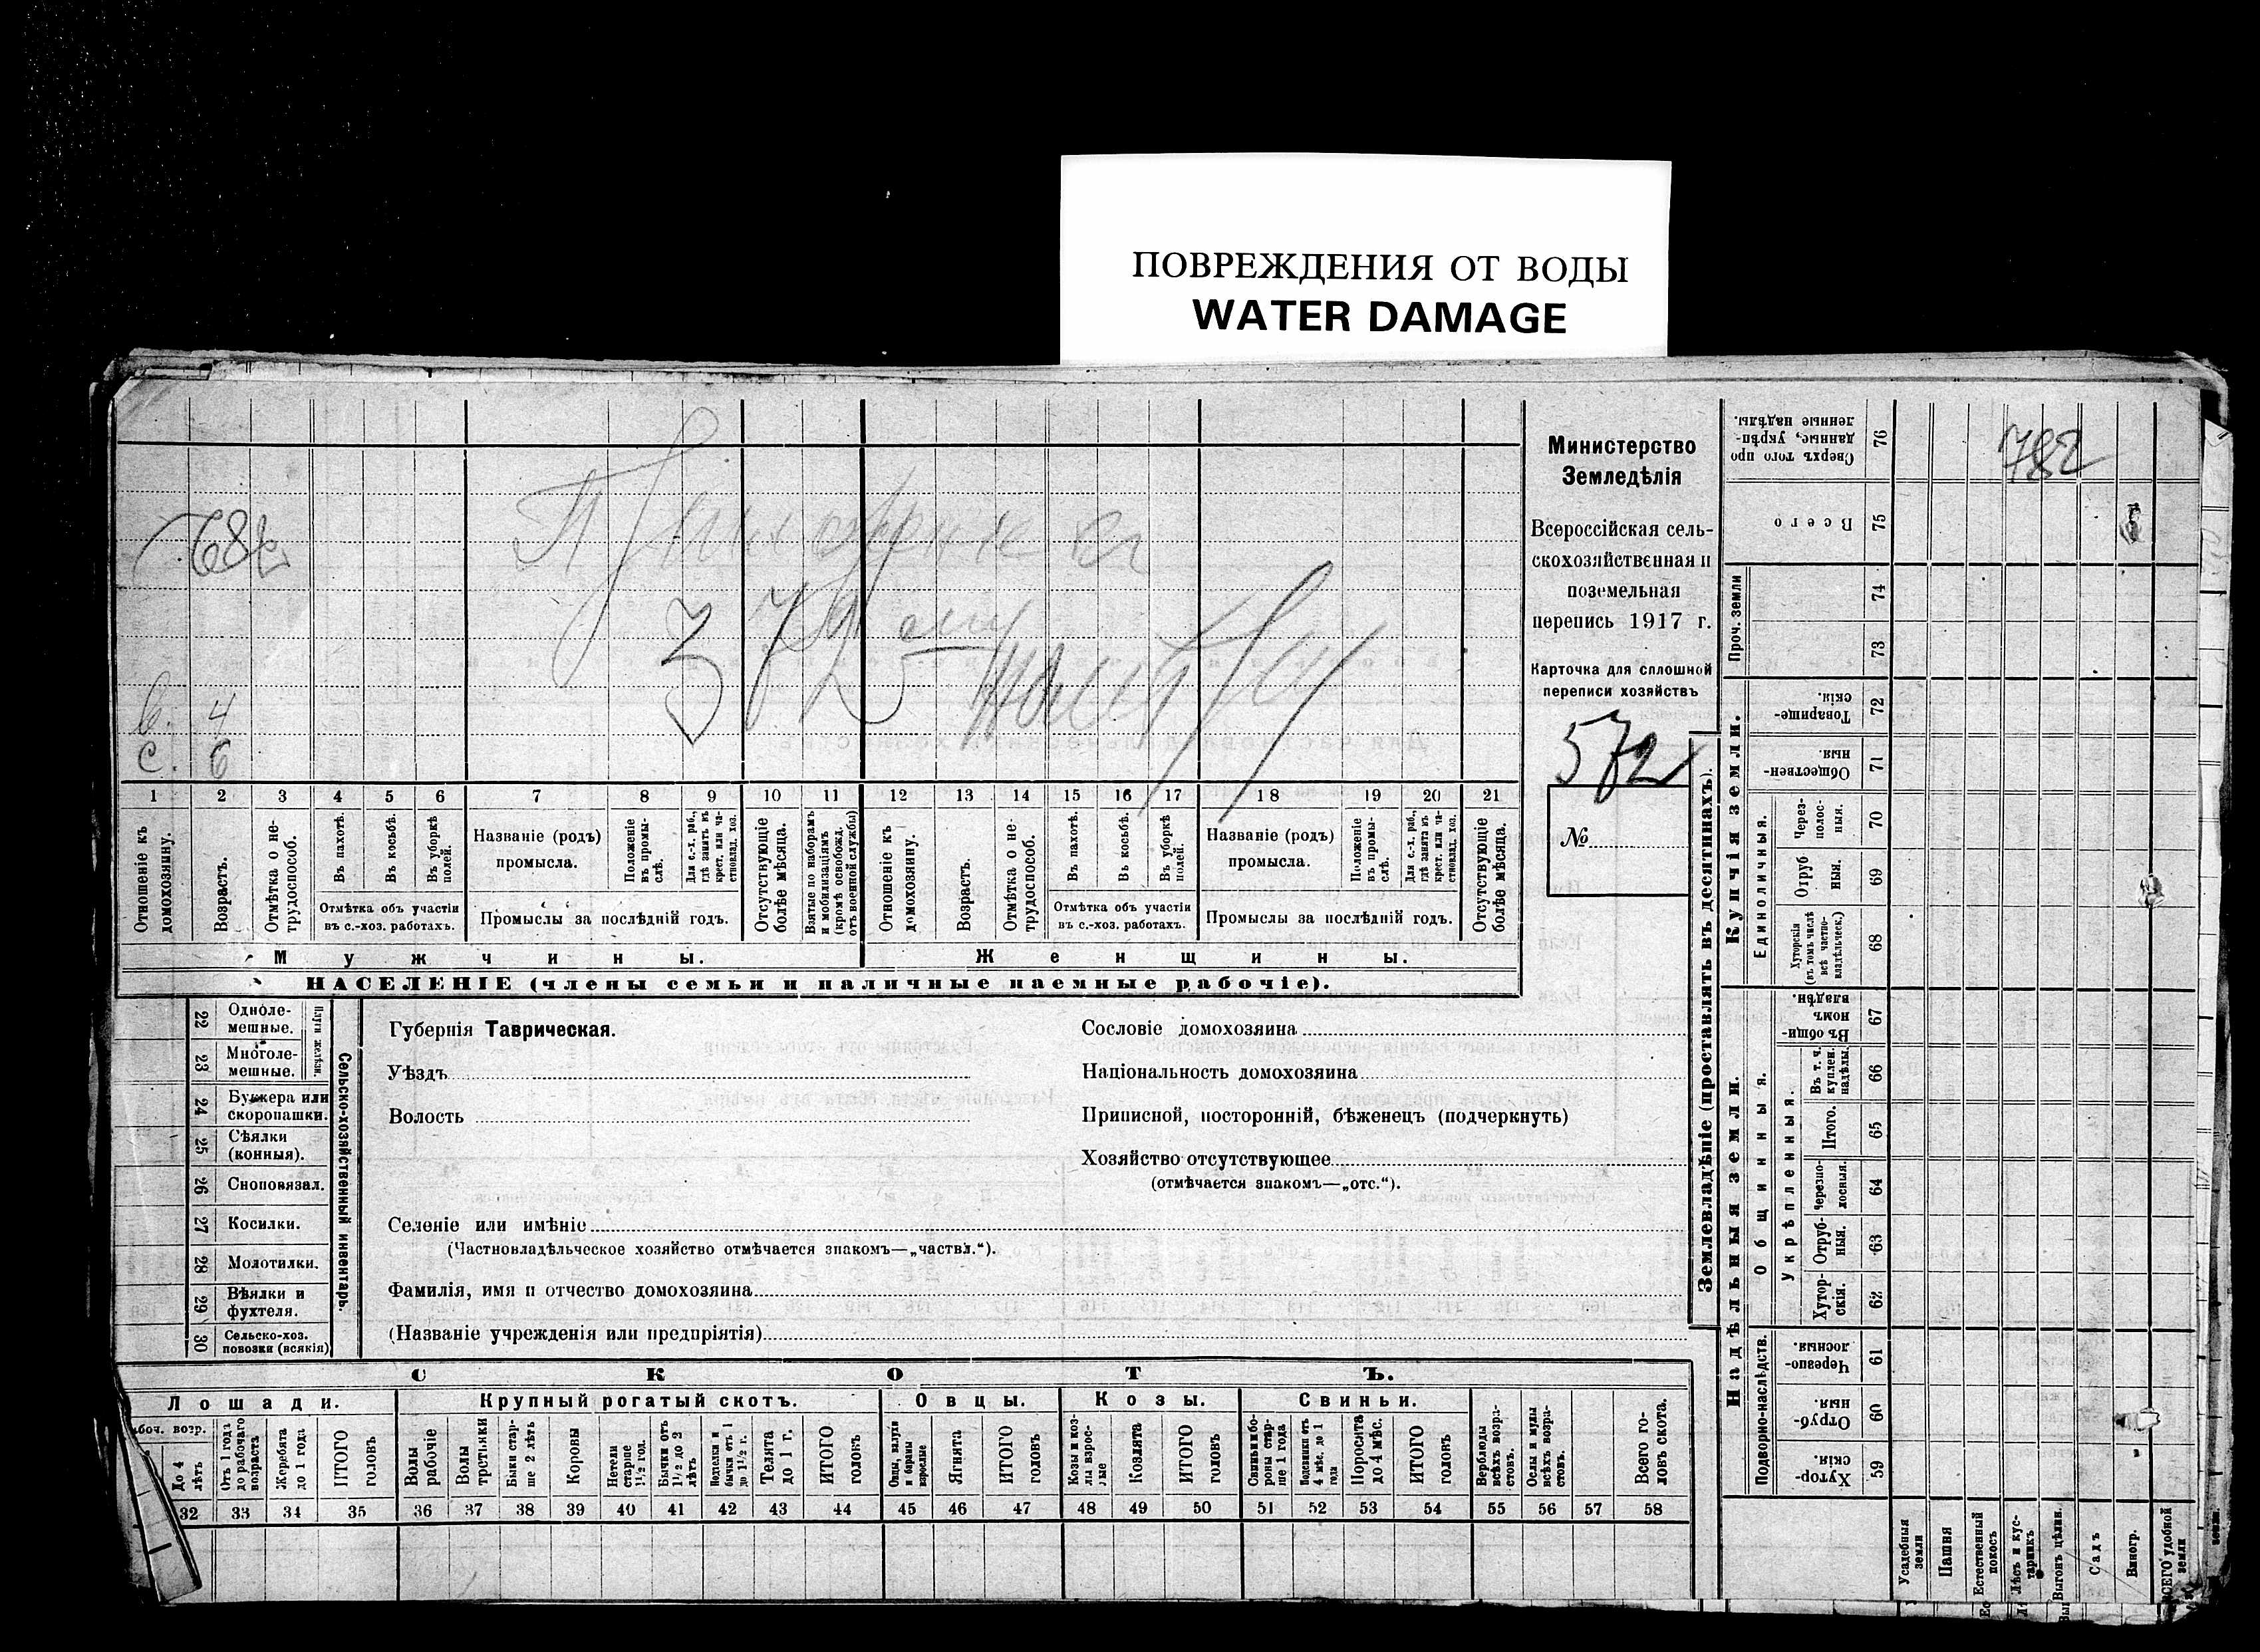 ПОВРЕЖДЕНИЯ ОТ ВОДЫ
WATER DAMAGE
782
в. 4
с. 6
1 2 3 4 5 6 7 8 9 10 11 12 13 14 15 16 17 18 19 20 21
Отношеніе къ домохозяину.
Возрастъ.
Отмѣтка о не-трудоспособ.
Въ пахотѣ.
Въ косьбѣ.
Въ уборкѣ полей.
Отмѣтка объ участіи
въ с.-хоз. работахъ.
Названіе (родъ)
промысла.
Положеніе въ промы-слѣ.
Для с.-х. раб., гдѣ занятъ въ крест. или ча-стновлад. хоз.
Промыслы за послѣдній годъ.
Отсутствующіе болѣе мѣсяца.
Взятые по наборамъ и мобилизаціямъ (кромѣ освобожд. отъ военной службы)
Отношеніе къ домохозяину.
Возрастъ.
Отмѣтка о не-трудоспособ.
Въ пахотѣ.
Въ косьбѣ.
Въ уборкѣ полей.
Отмѣтка объ участіи
въ с.-хоз. работахъ.
Названіе (родъ)
промысла.
Положеніе въ промы-слѣ.
Для с.-х. раб., гдѣ занята въ крест. или ча-стновлад. хоз.
Промыслы за послѣдній годъ.
Отсутствующіе болѣе мѣсяца.
Мужчины. Женщины.
НАСЕЛЕНІЕ (члены семьи и наличные наемные рабочіе).
Министерство
Земледѣлія
Всероссійская сель-
скохозяйственная и
поземельная
перепись 1917 г.
Карточка для сплошной
переписи хозяйствъ
572
№
22 Одноле-мешные.
23 Многоле-мешные.
Плуги желѣзн.
24 Буккера или скоропашки.
25 Сѣялки (конныя).
26 Сноповязал.
27 Косилки.
28 Молотилки.
29 Вѣялки и фухтеля.
30 Сельско-хоз. повозки (всякія)
Сельско-хозяйственный инвентарь.
Губернія Таврическая.
Уѣздъ
Волость
Сословіе домохозяина
Національность домохозяина
Приписной, посторонній, бѣженецъ (подчеркнуть)
Хозяйство отсутствующее
(отмѣчается знакомъ—„отс.“).
Селеніе или имѣніе
(Частновладѣльческое хозяйство отмѣчается знакомъ—„частвл.“).
Фамилія, имя и отчество домохозяина
(Названіе учрежденія или предпріятія)
СКОТЪ.
Лошади. Крупный рогатый скотъ. Овцы. Козы. Свиньи.
До 4 лѣтъ
Отъ 1 года до рабочаго возраста
Жеребята до 1 года
ИТОГО головъ
Волы рабочіе
Волы третьяки
Быки стар-ше 2 лѣтъ
Коровы
Нетели старше 1½ год.
Бычки отъ 1½ до 2 лѣтъ
Нетели и бычки отъ 1 до 1½ г.
Телята до 1 г.
ИТОГО головъ
Овцы, валухи и бараны взрослые
Ягнята
ИТОГО головъ
Козы и коз-лы взрос-лые
Козлята
ИТОГО головъ
Свиньи и бо-ровы стар-ше 1 года
Подсвинки отъ 4 мѣс. до 1 года
Поросята до 4 мѣс.
ИТОГО головъ
Верблюды всѣхъ возра-стовъ.
Ослы и мулы всѣхъ возра-стовъ.
Всего го-ловъ скота.
32 33 34 35 36 37 38 39 40 41 42 43 44 45 46 47 48 49 50 51 52 53 54 55 56 57 58
Землевладѣніе (проставлять въ десятинахъ).
782
76 Сверхъ того про данные, укрѣп-ленные надѣлы.
75 Всего
Проч. земли
74
73
Купчія земли.
72 Товарище-скія.
71 Обществен-ныя
Единоличныя.
70 Через-полос-ныя.
69 Отруб ныя.
68 Хуторскія (въ томъ числѣ всѣ частно-владѣльческ.)
Надѣльныя земли.
Общинныя.
67 Въ общи-номъ владѣн.
Укрѣпленныя.
66 Въ т. ч. куплен. надѣлы.
65 Итого.
64 Черезпо-лосныя.
63 Отруб-ныя.
62 Хутор-скія.
Подворно-наслѣдств.
61 Черезпо-лосныя.
60 Отруб-ныя.
59 Хутор-скія.
Усадебныя земли
Пашня
Естественный покосъ
Лѣсъ и кус-тарникъ
Выгонъ цѣлин.
Садъ
Виногр.
ВСЕГО удобной земли